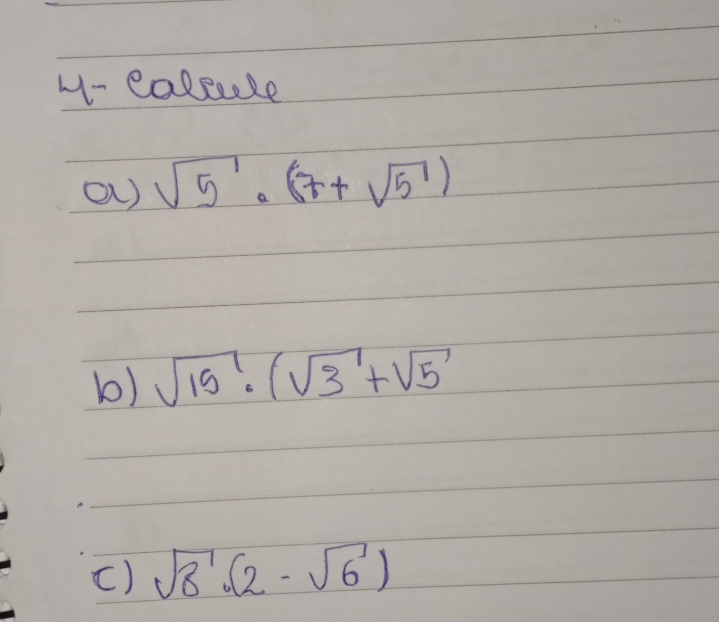 4- Calcule
a) √5 . (7 + √5)
b) √15 . (√3 + √5
c) √8 . (2 - √6)